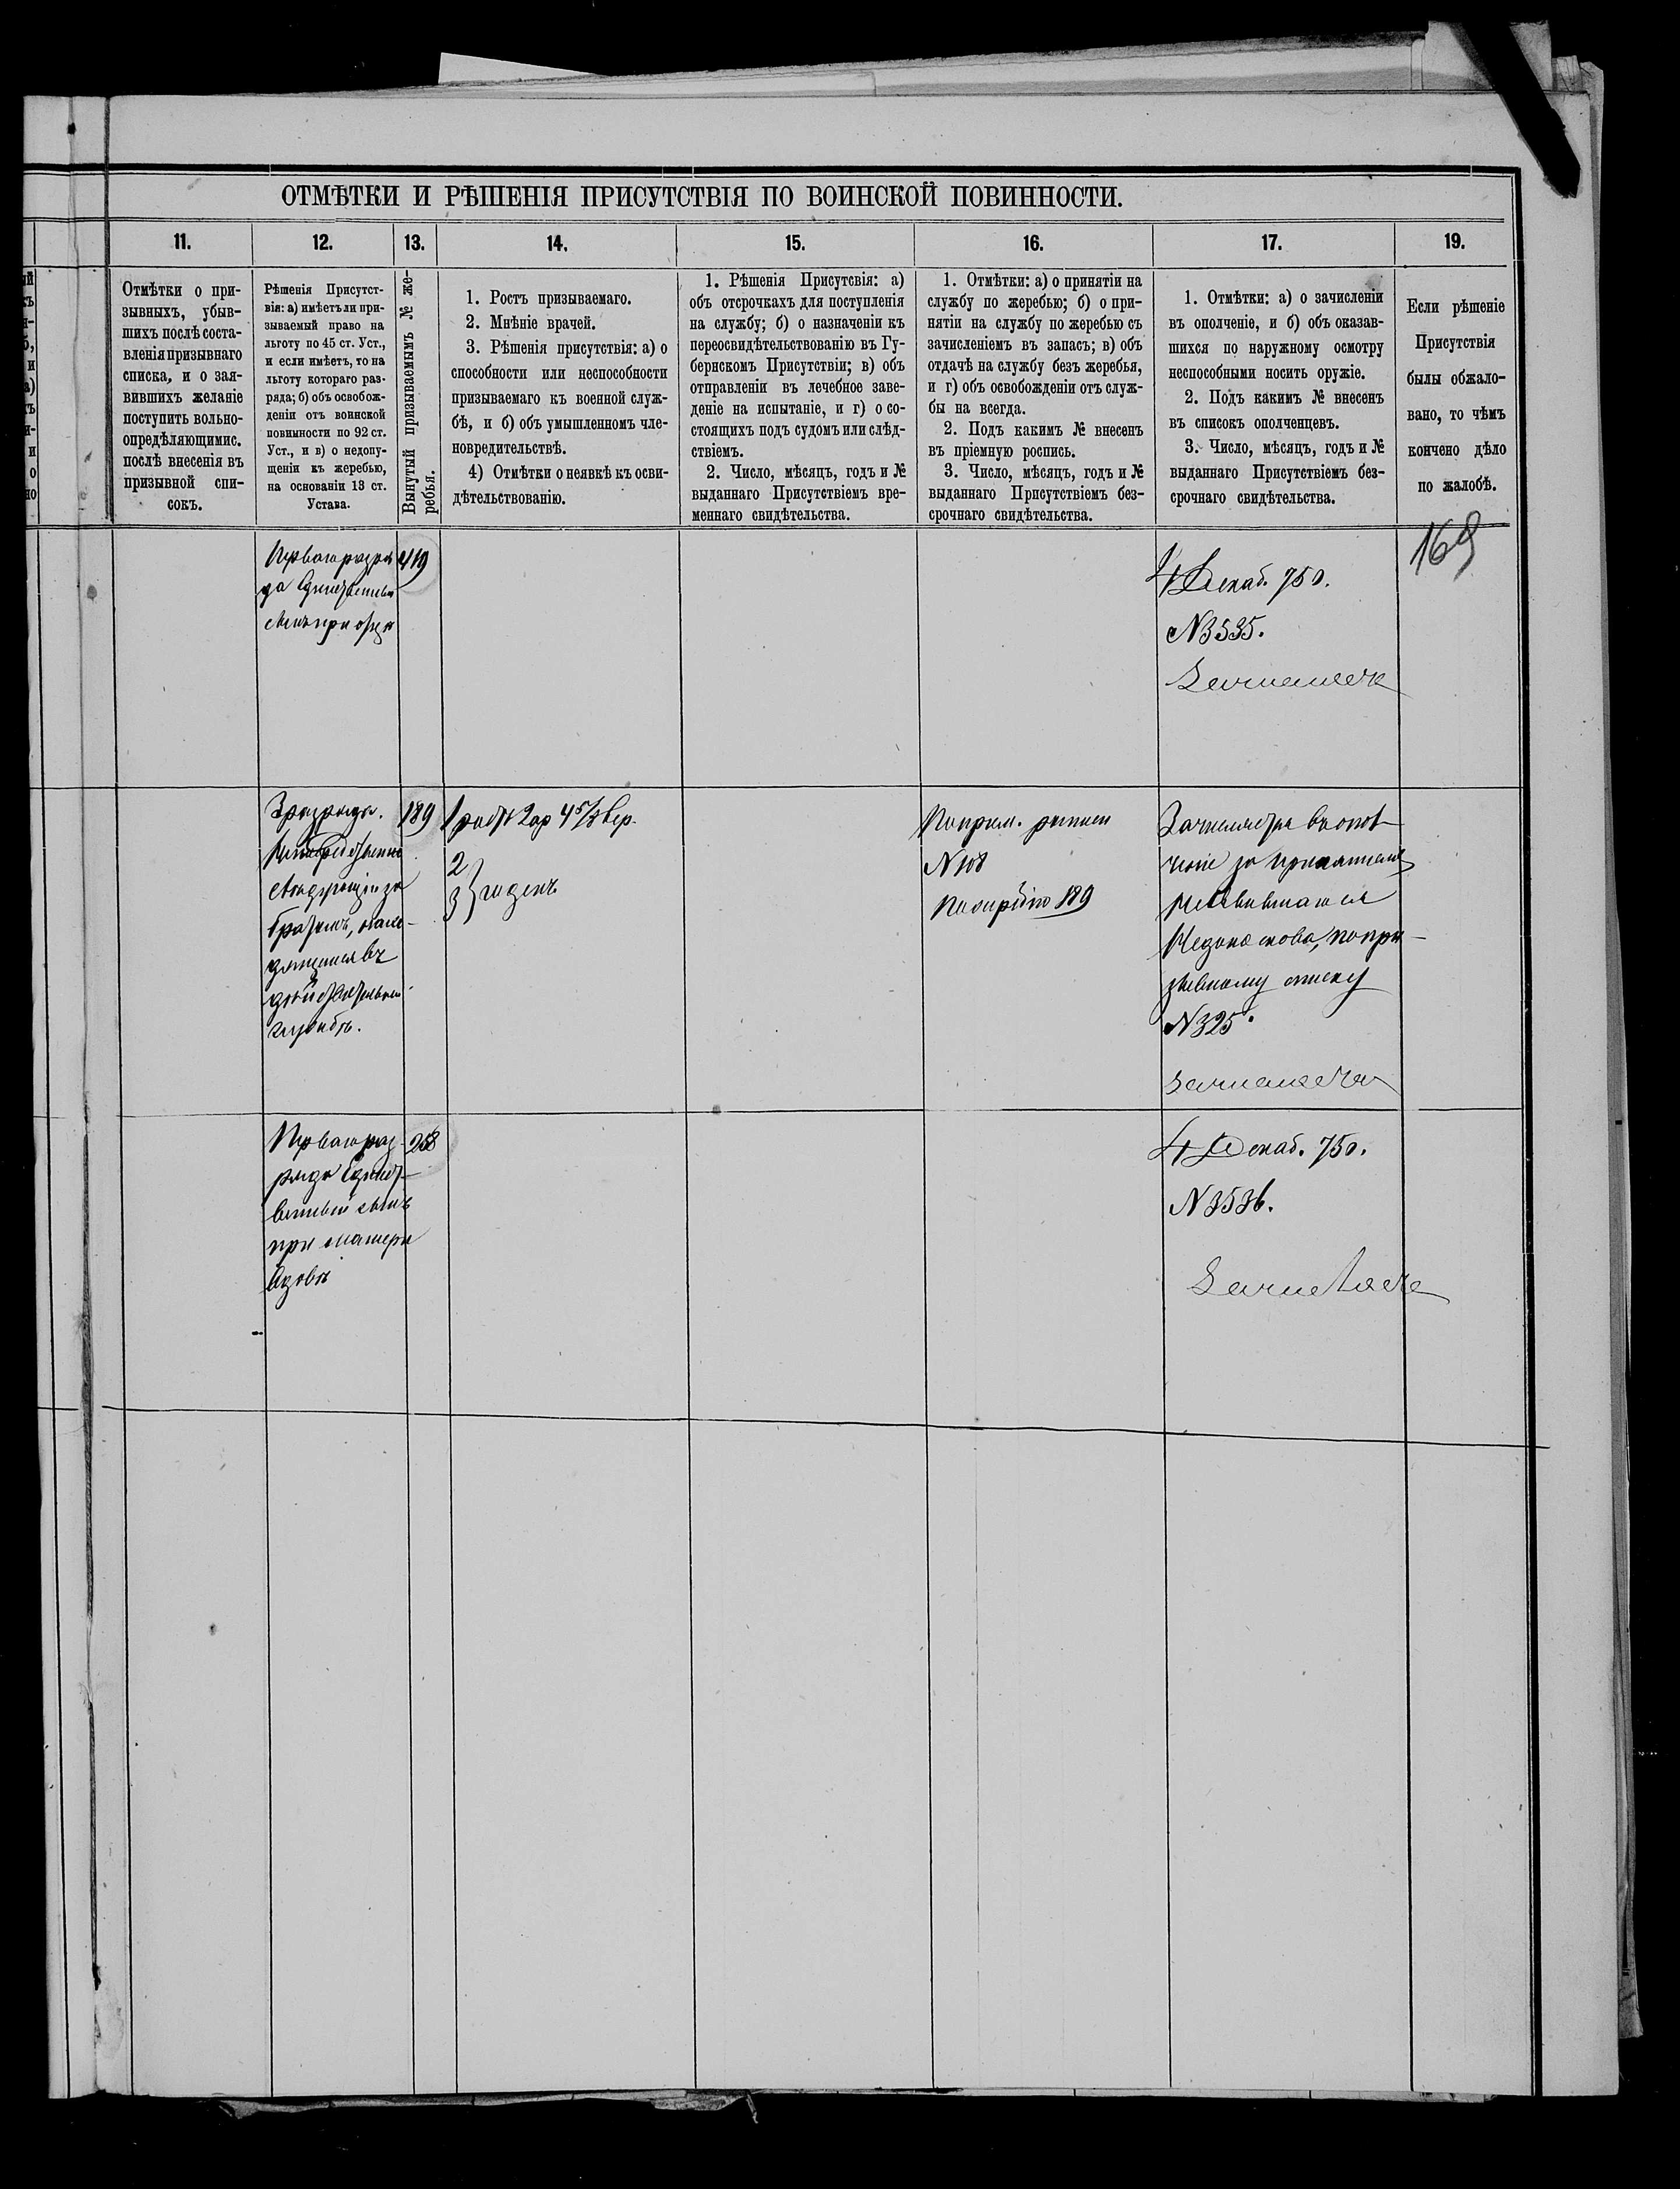 ОТМѢТКИ И РѢШЕНІЯ ПРИСУТСТВІЯ ПО ВОИНСКОЙ ПОВИННОСТИ.
11.
Отмѣтки о при-
зывныхъ, убыв-
шихъ послѣ соста-
вленія призывнаго
списка, и о зая-
вившихъ желаніе
поступить вольно-
опредѣляющимис.
послѣ внесенія въ
призывной спи-
сокъ.
12.
Рѣшенія Присутст-
вія: а) имѣетъ ли при-
зываемый право на
льготу по 45 ст. Уст.,
и если имѣетъ, то на
льготу котораго раз-
ряда; б) объ освобож-
деніи отъ воинской
повинности по 92 ст.
Уст., и в) о недопу-
щеніи къ жеребью,
на основаніи 13 ст.
Устава.
13.
Вынутый призываемымъ № же-
ребья.
14.
1. Ростъ призываемаго.
2. Мнѣніе врачей.
3. Рѣшенія присутствія: а) о
способности или неспособности
призываемаго къ военной служ-
бѣ, и б) объ умышленномъ чле-
новредительствѣ.
4) Отмѣтки о неявкѣ къ осви-
дѣтельствованію.
15.
1. Рѣшенія Присутсвія: а)
объ отсрочкахъ для поступленія
на службу; б) о назначеніи къ
переосвидѣтельствованію въ Гу-
бернскомъ Присутствіи; в) объ
отправленіи въ лечебное заве-
деніе на испытаніе, и г) о со-
стоящихъ подъ судомъ или слѣд-
ствіемъ.
2. Число, мѣсяцъ, годъ и №
выданнаго Присутствіемъ вре-
меннаго свидѣтельства.
16.
1. Отмѣтки: а) о принятіи на
службу по жеребью; б) о при-
нятіи на службу по жеребью съ
зачисленіемъ въ запасъ; в) объ
отдачѣ на службу безъ жеребья,
и г) объ освобожденіи отъ служ-
бы на всегда.
2. Подъ какимъ № внесенъ
въ пріемную роспись.
3. Число, мѣсяцъ, годъ и №
выданнаго Присутствіемъ без-
срочнаго свидѣтельства.
17.
1. Отмѣтки: а) о зачисленіи
въ ополченіе, и б) объ оказав-
шихся по наружному осмотру
неспособными носить оружіе.
2. Подъ какимъ № внесенъ
въ списокъ ополченцевъ.
3. Число, мѣсяцъ, годъ и №
выданнаго Присутствіемъ без-
срочнаго свидѣтельства.
19.
Если рѣшеніе
Присутствія
были обжало-
вано, то чѣмъ
кончено дѣло
по жалобѣ.
169
Перваго разря
да Единственный
сынъ при отцѣ
419
4 Декаб. 75 г.
№ 3535.
3 разряда.
Непосредственно
слѣдующій за
братомъ, нахо-
дящимся въ
дѣйствительной
службѣ.
189
1 ростъ 2 ар 4 5/8 вер.
2
3 } годенъ
По прием. росписи
№ 108
По жеребію 189
Зачисляется въ опол
ченіе за принятіемъ
неявившагося
по при-
зывному списку
№ 325.
Перваго раз-
ряда Единст-
венный сынъ
при матери
вдовѣ
258
4 Декаб. 75 г.
№ 3536.